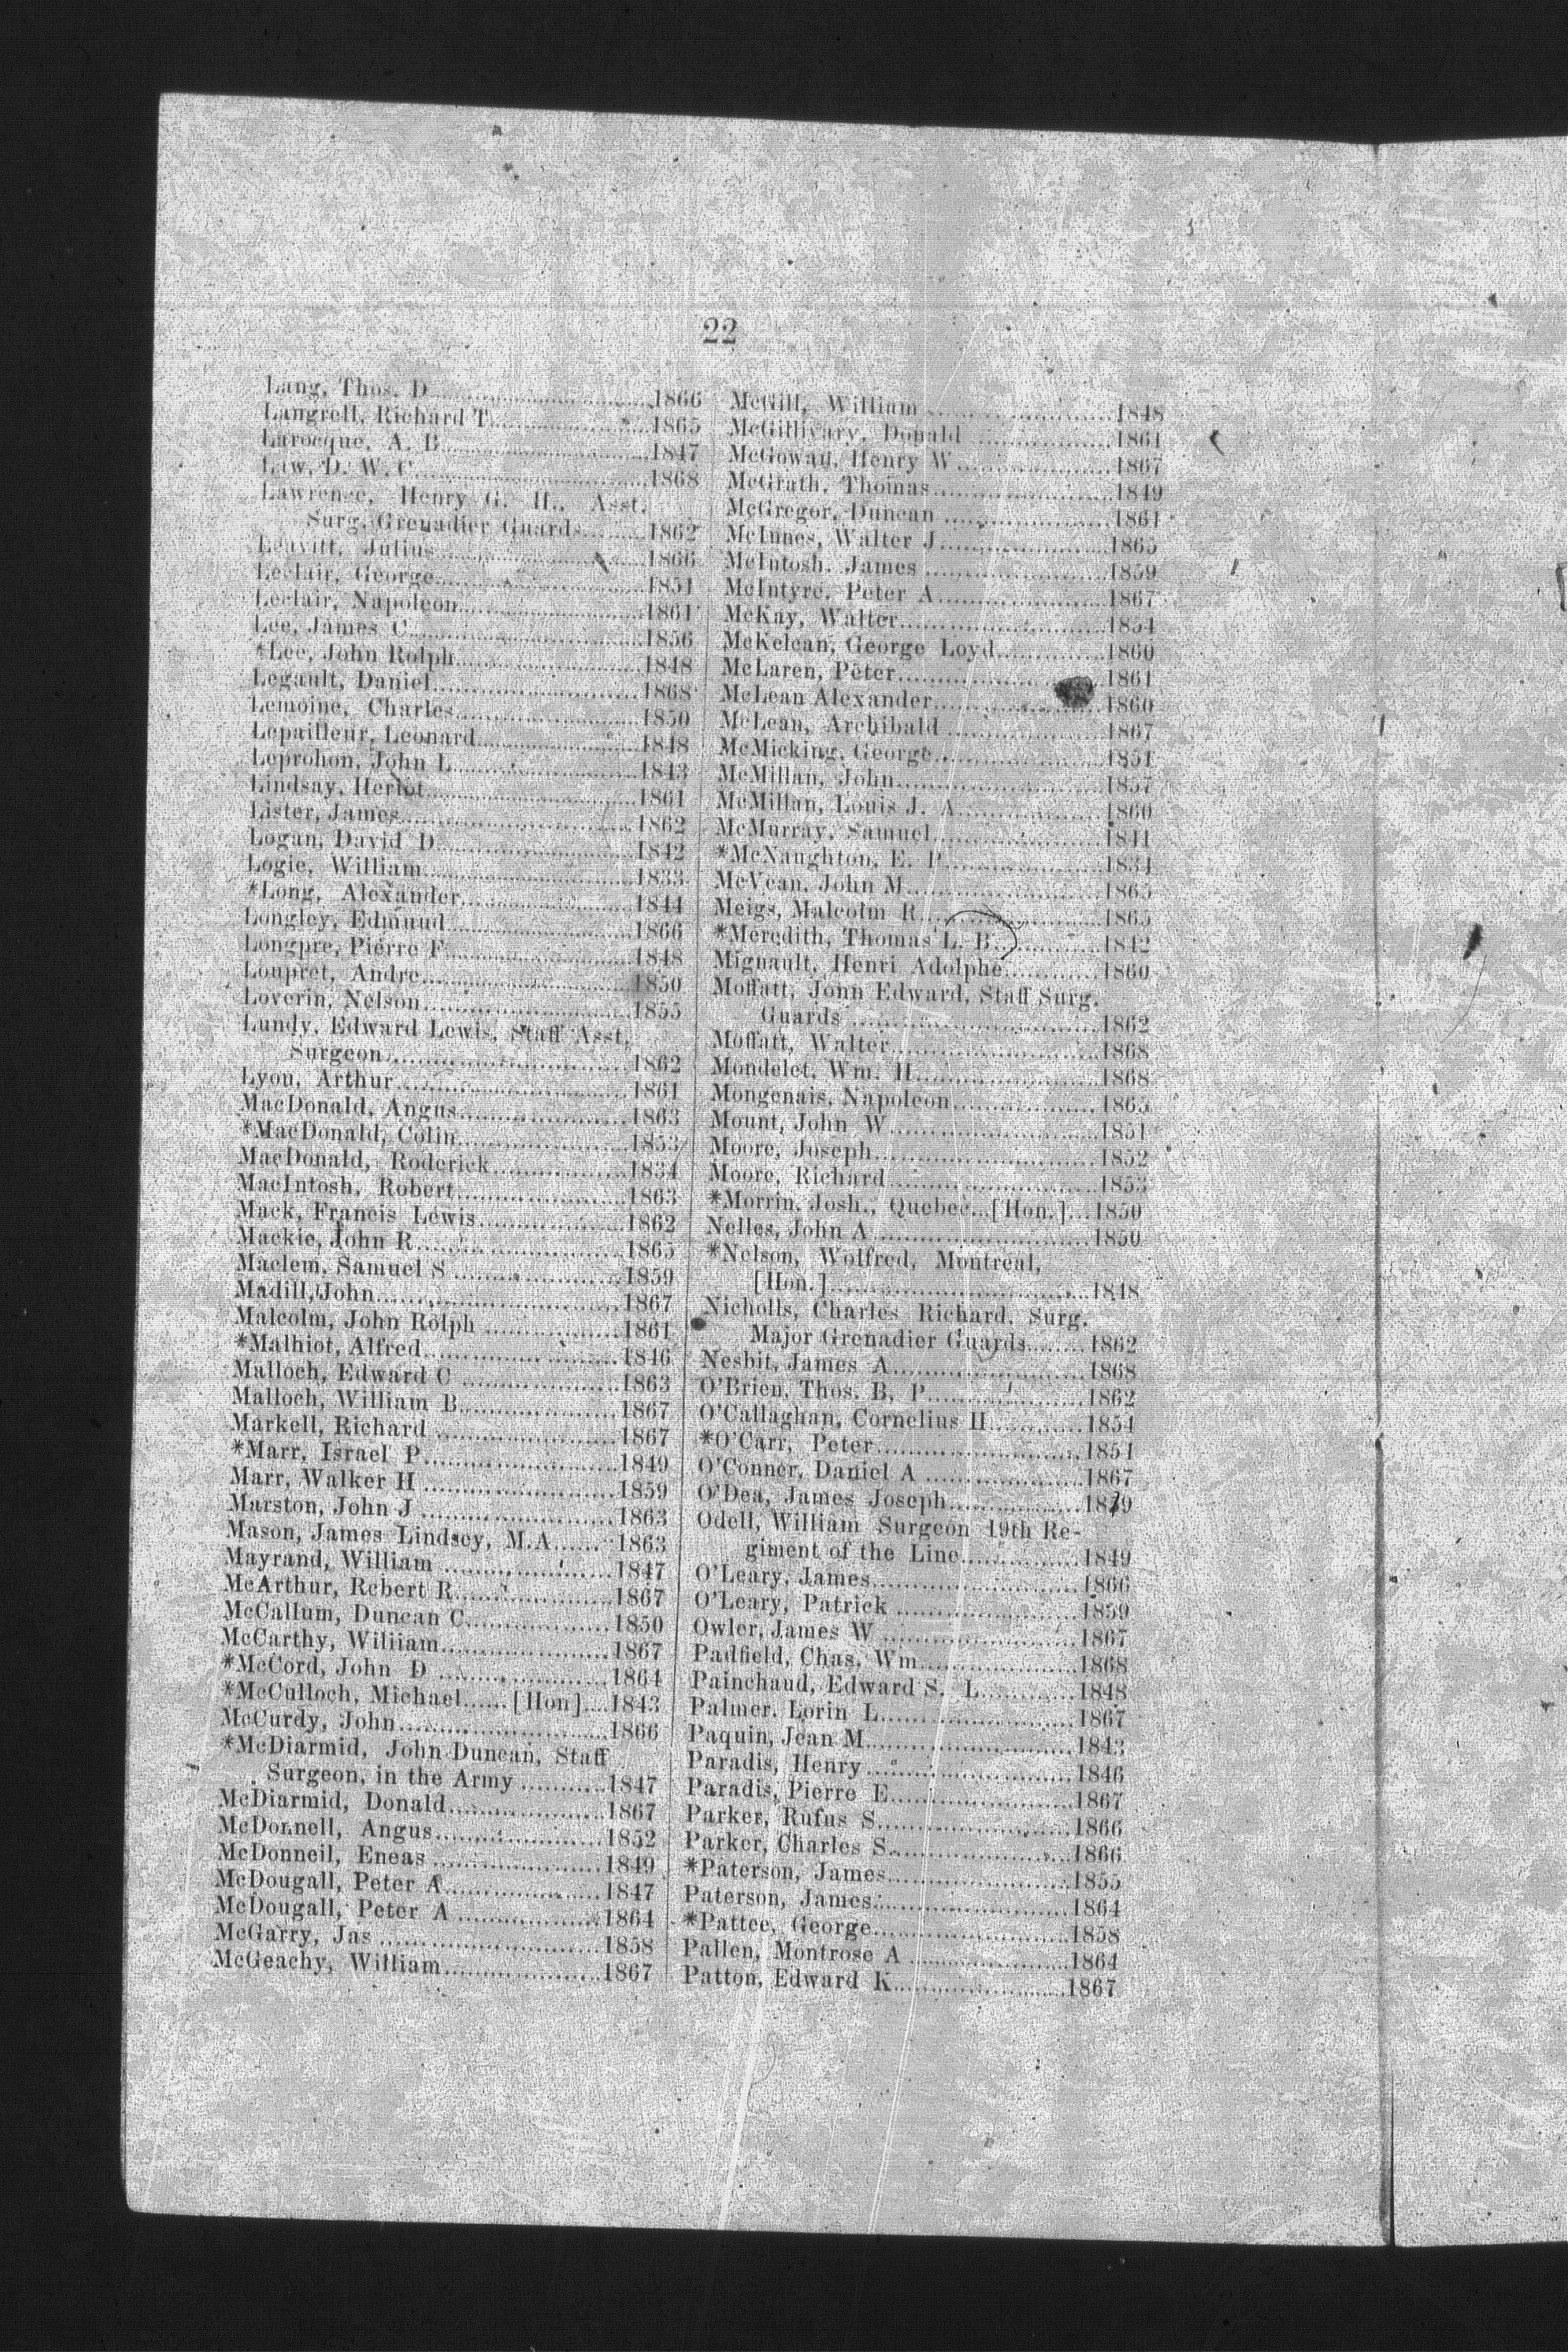 22
Lang, Thos. D. 1866
Langrell, Richard T. 1865
Larocque, A. B. 1847
Law, D. W. C. 1868
Lawrence, Henry G. H., Asst.
Surg. Grenadier Guards 1862
Leavitt, Julius 1866
Leclair, George 1851
Leclair, Napoleon 1861
Lee, James C. 1856
*Lee, John Rolph 1848
Legault, Daniel 1868
Lemoine, Charles 1850
Lepailleur, Leonard 1848
Leprohon, John L. 1843
Lindsay, Heriot 1861
Lister, James 1862
Logan, David D. 1842
Logie, William 1833
*Long, Alexander 1844
Longley, Edmund 1866
Longpre, Pierre F. 1848
Loupret, Andre 1850
Loverin, Nelson 1855
Lundy, Edward Lewis, Staff Asst.
Surgeon 1862
Lyon, Arthur 1861
MacDonald, Angus 1863
*MacDonald, Colin 1853
MacDonald, Roderick 1834
MacIntosh, Robert 1863
Mack, Francis Lewis 1862
Mackie, John R. 1865
Maclem, Samuel S 1859
Madill, John 1867
Malcolm, John Rolph 1861
*Malhiot, Alfred 1846
Malloch, Edward C 1863
Malloch, William B. 1867
Markell, Richard 1867
*Marr, Israel P. 1849
Marr, Walker H 1859
Marston, John J 1863
Mason, James Lindsey, M.A. 1863
Mayrand, William 1847
McArthur, Rebert R. 1867
McCallum, Duncan C. 1850
McCarthy, Wiliiam 1867
*McCord, John D 1864
*McCulloch, Michael [Hon] 1843
McCurdy, John 1866
*McDiarmid, John Duncan, Staff
Surgeon, in the Army 1847
McDiarmid, Donald 1867
McDonnell, Angus 1852
McDonneil, Eneas 1849
McDougall, Peter A. 1847
McDougall, Peter A 1864
McGarry, Jas 1858
McGeachy, William 1867
McGill, William 1848
McGillivary, Donald 1861
McGowan, Henry W 1867
McGrath, Thomas 1849
McGregor, Duncan 1861
McInnes, Walter J. 1865
McIntosh, James 1859
McIntyre, Peter A. 1867
McKay, Walter 1854
McKelcan, George Loyd 1860
McLaren, Peter 1861
McLean Alexander 1860
McLean, Archibald 1867
McMicking, George 1851
McMillan, John 1857
McMillan, Louis J. A. 1860
McMurray, Samuel 1841
*McNaughton, E. P. 1834
McVean, John M. 1865
Meigs, Malcolm R. 1865
*Meredith, Thomas L. B. 1842
Mignault, Henri Adolphe 1860
Moffatt, Jonn Edward, Staff Surg.
Guards 1862
Moffatt, Walter 1868
Mondelet, Wm. H. 1868
Mongenais, Napoleon 1865
Mount, John W. 1851
Moore, Joseph 1852
Moore, Richard 1853
*Morrin, Josh., Quebec [Hon.] 1850
Nelles, John A 1850
*Nelson, Wolfred, Montreal,
[Hon.] 1848
Nicholls, Charles Richard, Surg.
Major Grenadier Guards 1862
Nesbit, James A. 1868
O'Brien, Thos. B. P. 1862
O'Callaghan, Cornelius H. 1854
*O'Carr, Peter 1851
O'Conner, Daniel A 1867
O'Dea, James Joseph 1879
Odell, William Surgeon 19th Re-
giment of the Line 1849
O'Leary, James 1866
O'Leary, Patrick 1859
Owler, James W 1867
Padfield, Chas. Wm. 1868
Painchaud, Edward S. L. 1848
Palmer, Lorin L. 1867
Paquin, Jean M. 1843
Paradis, Henry 1846
Paradis, Pierre E. 1867
Parker, Rufus S. 1866
Parker, Charles S. 1866
*Paterson, James 1855
Paterson, James 1864
*Pattee, George 1858
Pallen, Montrose A 1864
Patton, Edward K. 1867